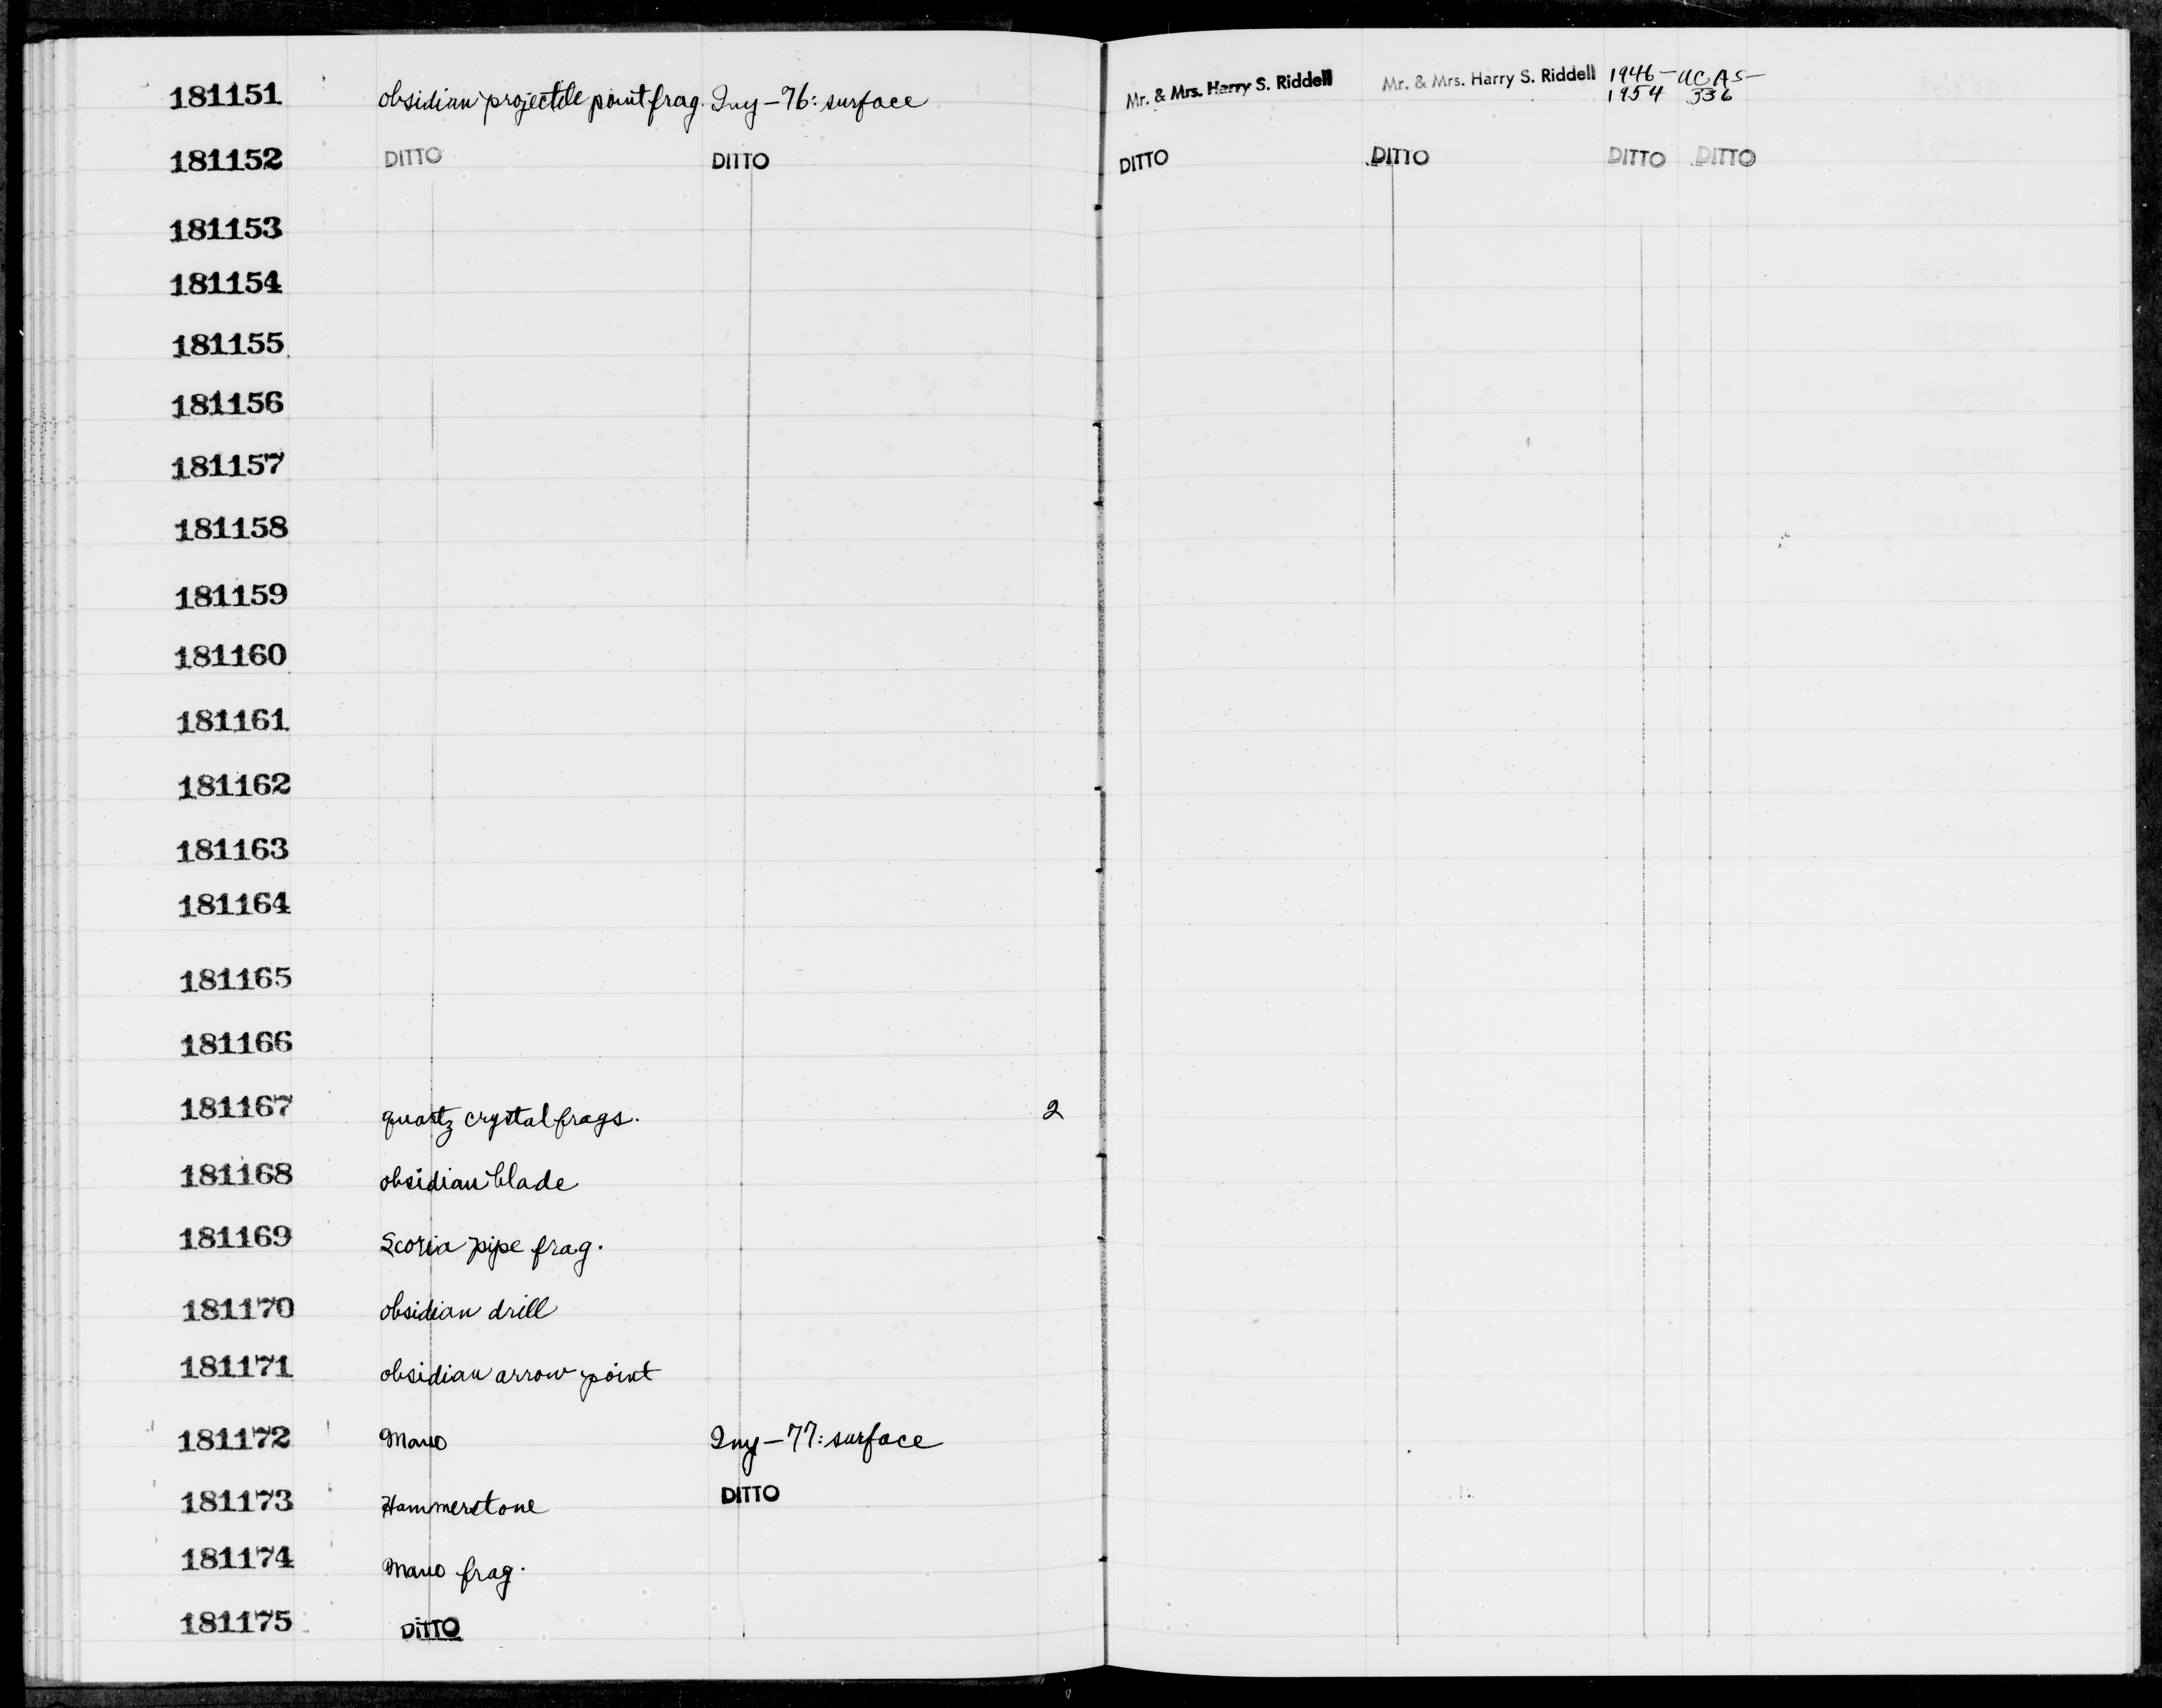 181151 obsidian projectile point frag. Iny-76: surface Mr. & Mrs. Harry S. Riddell Mr. & Mrs. Harry S. Riddell 1946-1954 UCAS-336
181152 DITTO DITTO DITTO DITTO DITTO DITTO
181153
181154
181155
181156
181157
181158
181159
181160
181161
181162
181163
181164
181165
181166
181167 quartz crystal frags. 2
181168 obsidian blade
181169 Scoria pipe frag.
181170 obsidian drill
181171 obsidian arrow point
181172 Mano Iny-77: surface
181173 Hammerstone DITTO
181174 Mano frag.
181175 DITTO